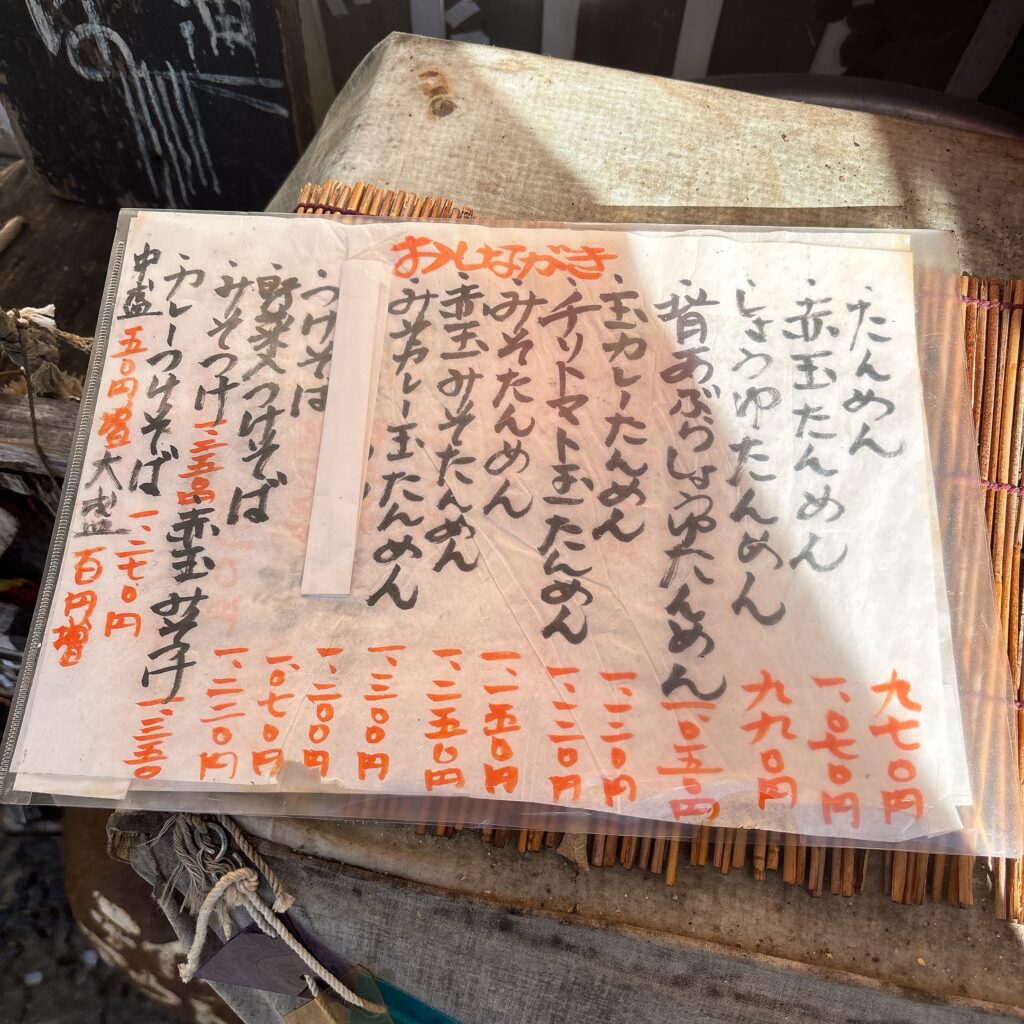 おしながき
・たんめん 九七〇円
・赤玉たんめん 一、〇七〇円
・しょうゆたんめん 九九〇円
・背あぶらしょうゆたんめん 一、〇五〇円
・玉カレーたんめん 一、二二〇円
・チリトマト玉たんめん 一、二二〇円
・みそたんめん 一、一五〇円
・赤玉みそたんめん 一、二五〇円
・みそカレー玉たんめん 一、三〇〇円
一、二〇〇円
・つけそば 一、〇七〇円
・野菜入つけそば 一、二二〇円
・みそつけ 一、二五〇円 赤玉みそつけ 一、三五〇
・カレーつけそば 一、二七〇円
中盛 五〇円増 大盛 百円増